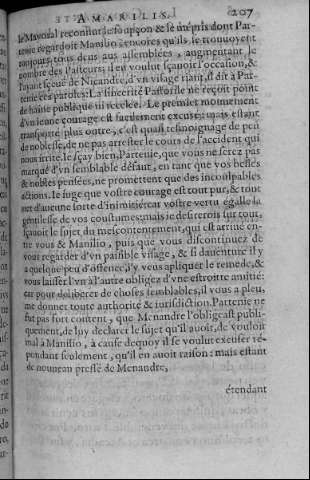 ET AMARILIS. 207
le Mayoral reconnut le soupçon & le mépris dont Par-
tenie regardoit Manilio: encores qu'ils se trouuoyent
toujours tous deux aux assemblées, augmentant le
nombre des Pasteurs; il en voulut sçauoir l'occasion, &
l'ayant sceuë de Nicandre, d'vn visage riant, il dit à Par-
tenie ces paroles: La sincerité Pastorale ne reçoit point
de haine publique ni recelée. Le premier mouuement
d'vn jeune courage est facilement excusé; mais estant
transporté plus outre, c'est quasi tesmoignage de peu
de noblesse, de ne pas arrester le cours de l'accident qui
nous irrite. Ie sçay bien, Partenie, que vous ne serez pas
marqué d'vn semblable défaut, en tant que voz belles
& nobles pensées, ne promettent que des incoulpables
actions. Ie iuge que vostre courage est tout pur, & tout
net d'aucune sorte d'inimitié: car vostre vertu égalle la
gentilesse de vos coustumes: mais ie desirerois sur tout,
sçauoir le sujet du mescontentement, qui est arriué en-
tre vous & Manilio, puis que vous discontinuez de
vous regarder d'vn paisible visage, & si dauenture il y
a quelque peu d'offence, j'y veus apliquer le remede, &
vous laisser l'vn à l'autre obligez d'vne estroitte amitié:
car pour deliberer de choses semblables, il vous a pleu,
me donner toute authorité & iurisdiction. Partenie ne
fut pas fort content, que Menandre l'obligeast publi-
quement, de luy declarer le sujet qu'il auoit, de vouloir
mal à Manilio, à cause dequoy il se voulut excuser ré-
pendant seulement, qu'il en auoit raison: mais estant
de nouueau pressé de Menandre,
étendant